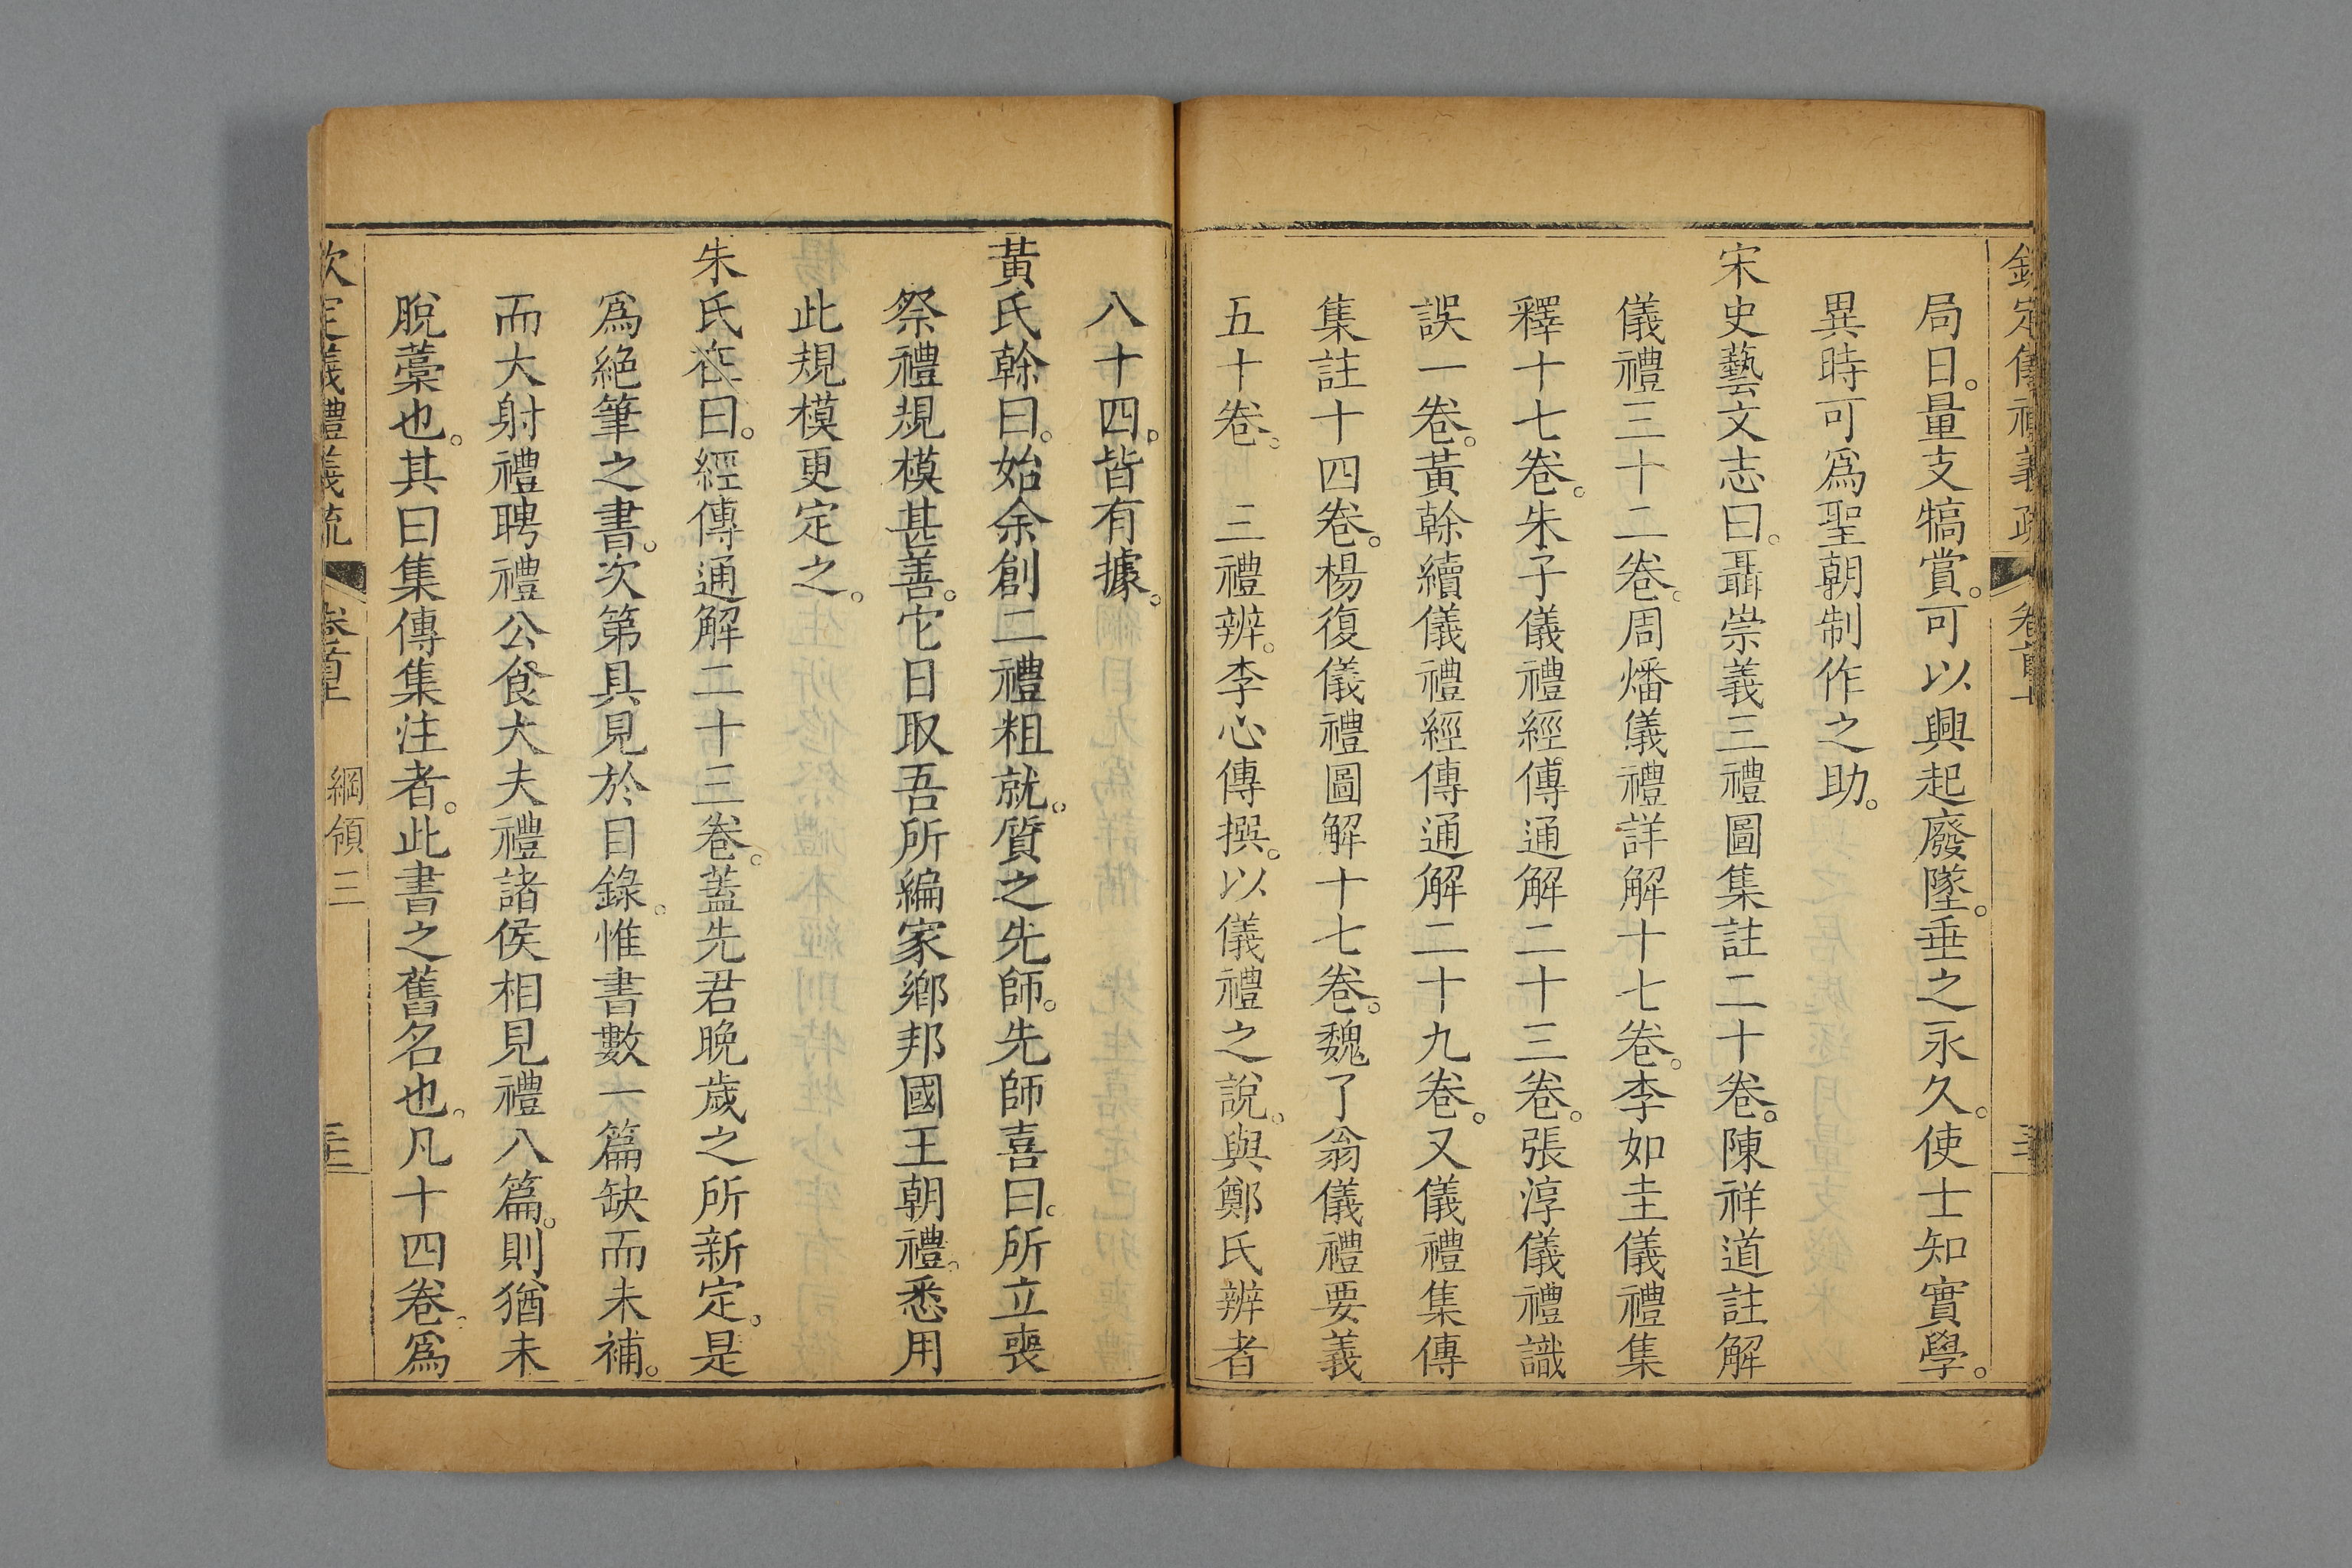 局日。量支犒賞。可以興起廢墜。垂之永久。使士知實學。
異時可爲聖朝制作之助。
宋史藝文志曰。聶崇義三禮圖集註二十卷。陳祥道註解
儀禮三十二卷。周燔儀禮詳解十七卷。李如圭儀禮集
釋十七卷。朱子儀禮經傳通解二十三卷。張淳儀禮識
誤一卷。黃榦續儀禮經傳通解二十九卷。又儀禮集傳
集註十四卷。楊復儀禮圖解十七卷。魏了翁儀禮要義
五十卷。 三禮辨。李心傳撰。以儀禮之說。與鄭氏辨者
八十四。皆有據。
黃氏榦曰。始余創二禮粗就。質之先師。先師喜曰。所立喪
祭禮規模甚善。它日取吾所編家鄉邦國王朝禮。悉用
此規模更定之。
朱氏在曰。經傳通解二十三卷。蓋先君晚歲之所新定。是
爲絕筆之書。次第具見於目錄。惟書數一篇缺而未補。
而大射禮聘禮公食大夫禮諸侯相見禮八篇。則猶未
脫藁也。其曰集傳集注者。此書之舊名也。凡十四卷。爲
欽定儀禮義疏 卷首上 綱領三